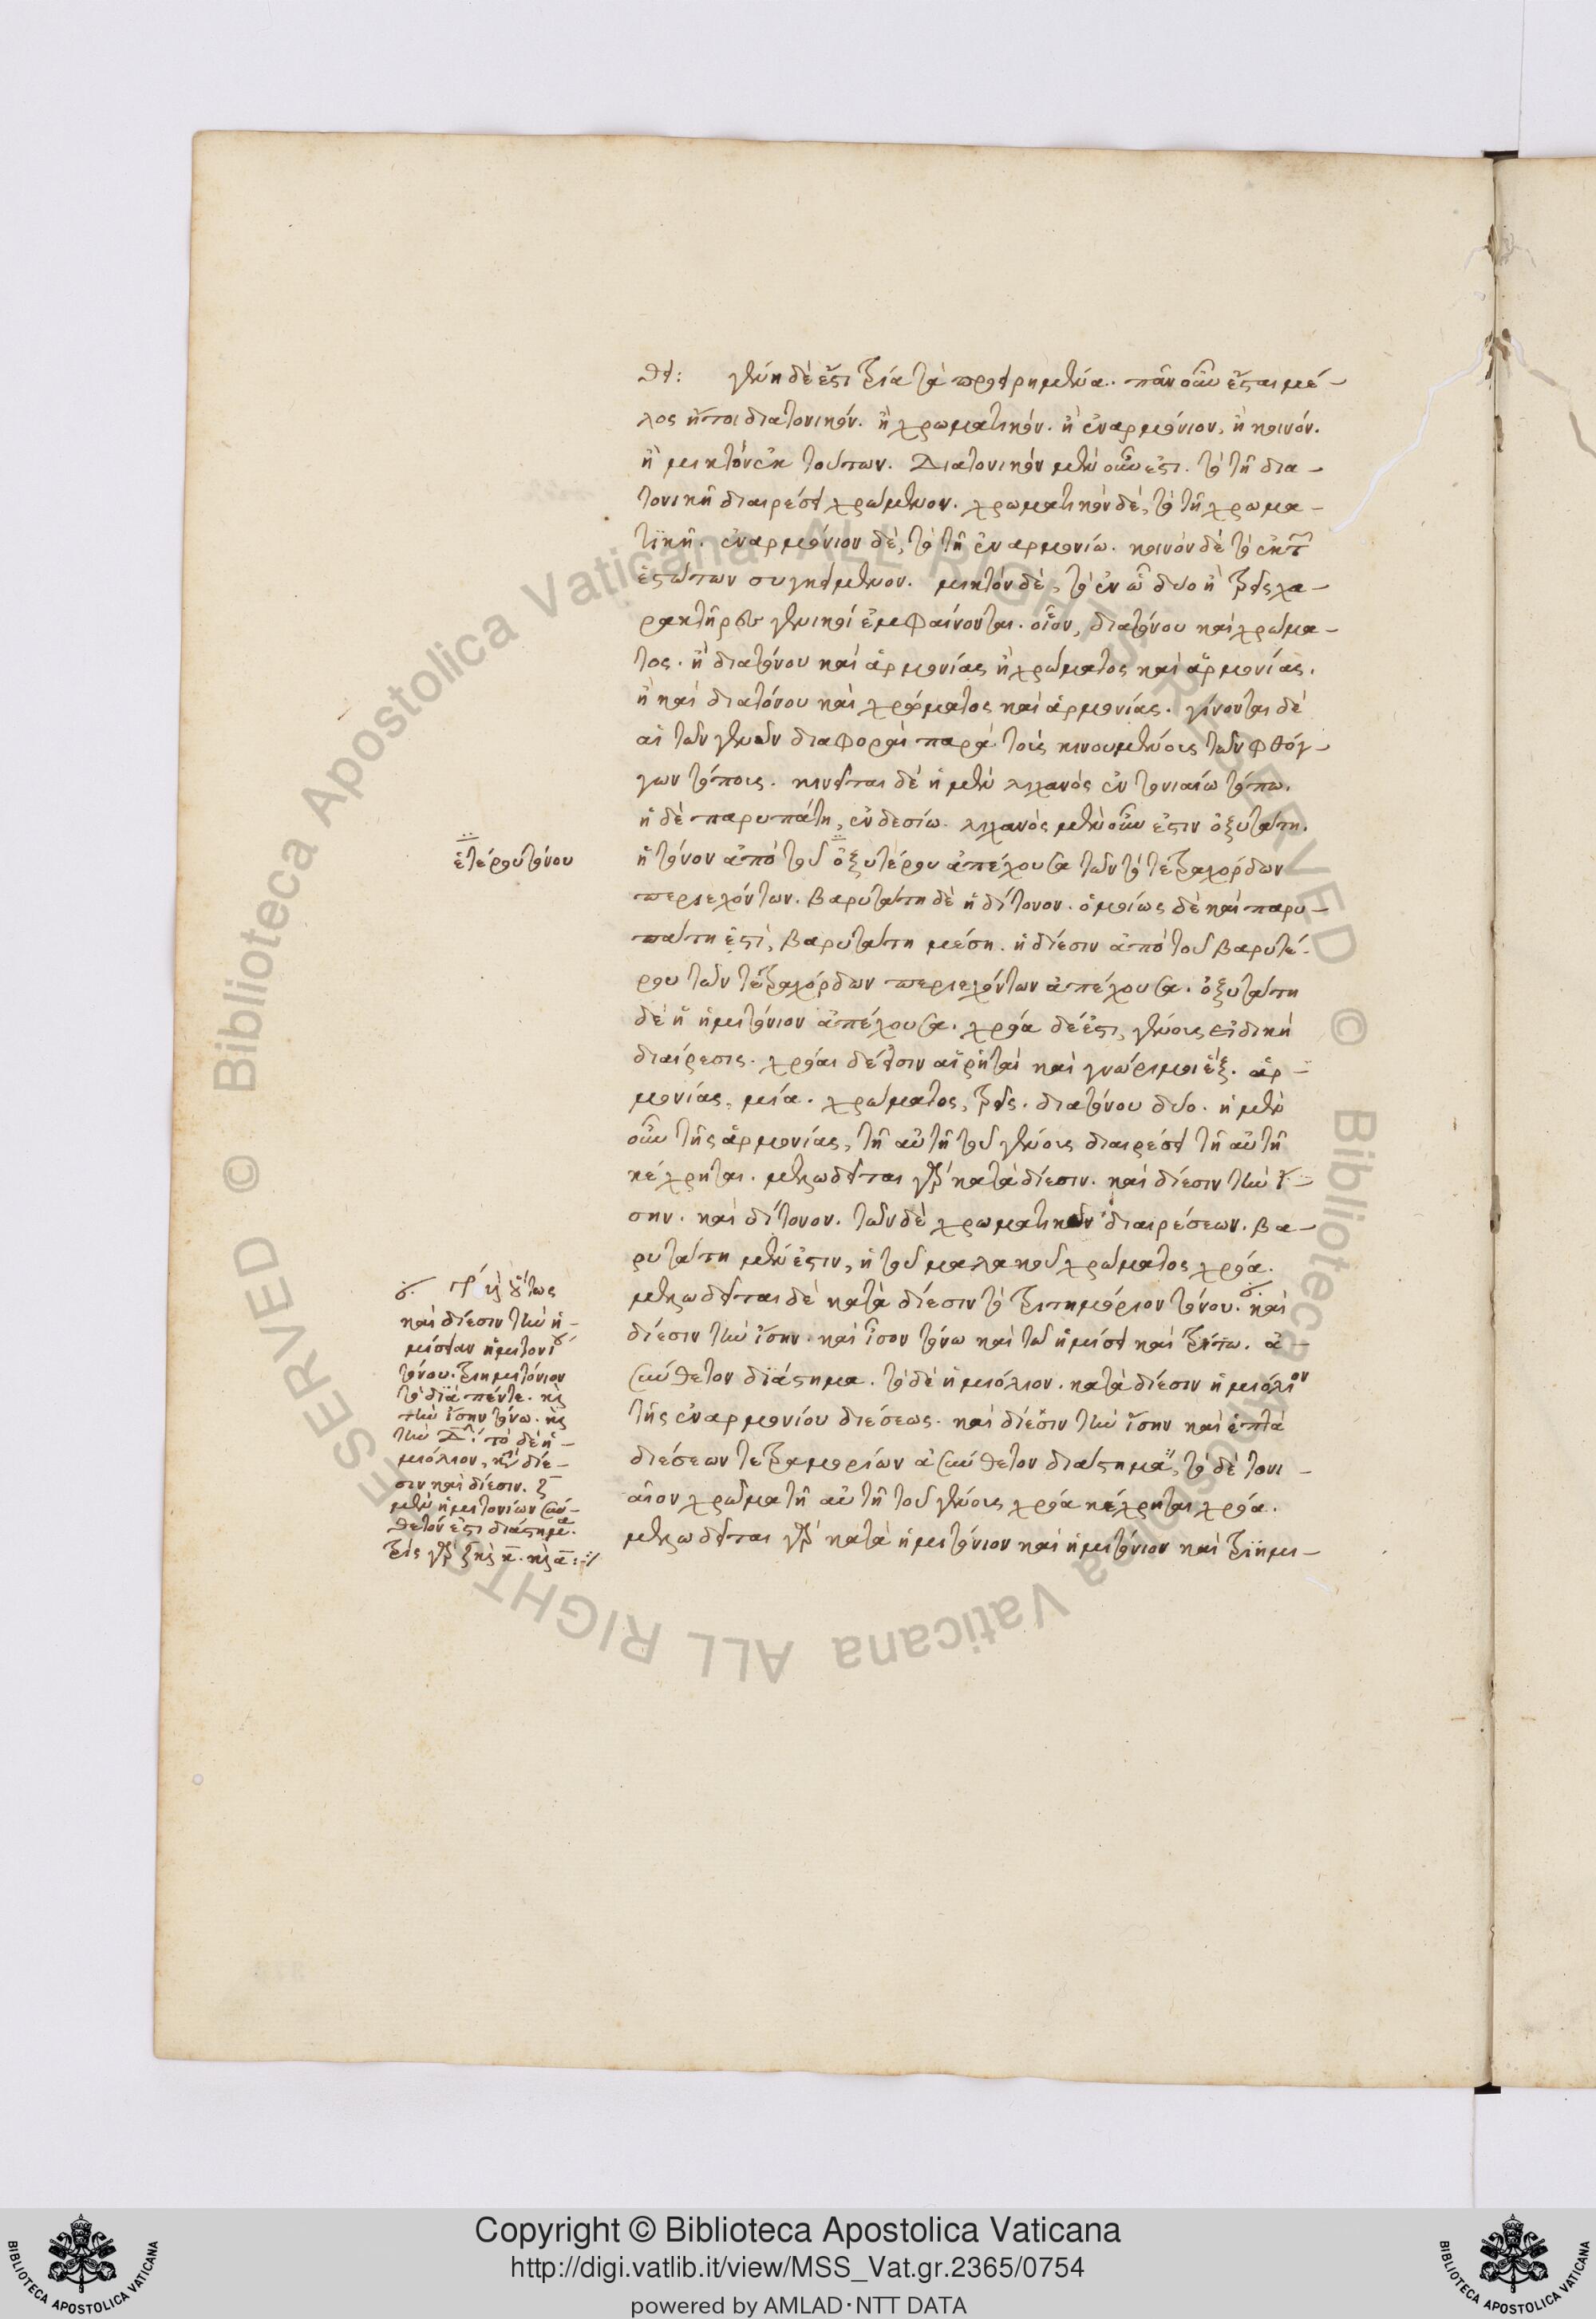 θει: γένη δέ ἐστι τρία τὰ προειρημένα. πᾶν οὖν ἔσται μέ-
λος ἤτοι διατονικόν. ἢ χρωματικόν. ἢ ἐναρμόνιον, ἢ κοινόν.
ἢ μικτὸν ἐκ τούτων. Διατονικὸν μὲν οὖν ἐστι. τὸ τῇ δια-
τονικῇ διαιρέσει χρώμενον. χρωματικὸν δὲ, τὸ τῇ χρωμα-
τϊκῇ. ἐναρμόνιον δὲ, τὸ τῇ ἐναρμονίω. κοινὸν δὲ τὸ ἐκ τῶν
ἑστώτων συγκείμενον. μικτὸν δὲ, τὸ ἐν ὧ δύο ἢ τρεῖς χα-
ρακτῆρες γενικοὶ ἐμφαίνονται. οἷον, διατόνου καὶ χρώμα-
τος. ἢ διατόνου καὶ ἁρμονίας ἢ χρώματος καὶ ἁρμονίας.
ἢ καὶ διατόνου καὶ χρώματος καὶ ἁρμονίας. γίνονται δὲ
αἱ τῶν γενῶν διαφοραὶ παρὰ τοὺς κινουμένους τῶν φθόγ-
γων τόπους. κινεῖται δὲ ἡ μὲν λιχανὸς ἐν τονιαίω τόπω.
ἡ δὲ παρυπάτη, ἐν δεσίω. λιχανὸς μὲν οὖν ἐστιν ὀξυτάτη.
ἡ τόνον ἀπὸ τοῦ ὀξυτέρου ἀπέχουσα τῶν τὸ τετράχορδων
περιεχόντων. βαρυτάτη δὲ ἡ δίτονον. ὁμοίως δὲ καὶ παρυ-
πάτη ἐστὶ, βαρυτάτη μέση. ἡ δίεσιν ἀπὸ τοῦ βαρυτέ-
ρου τῶν τετραχόρδων περιεχόντων ἀπέχουσα. ὀξυτάτη
δὲ ἡ ἡμιτόνιον ἀπέχουσα. χρόα δέ ἐστι, γένους εἰδικὴ
διαίρεσις. χρόαι δέ εἰσιν αἱ ῥηταὶ καὶ γνώριμοι ἕξ. ἁρ-
μονίας, μία. χρώματος, τρεῖς. διατόνου δύο. ἡ μὲν
οὖν τῆς ἁρμονίας, τῇ αὐτῇ τοῦ γένους διαιρέσει τῇ αὐτῇ
κέχρηται. μελωδεῖται γὰρ κατὰ δίεσιν. καὶ δίεσιν τὴν ἴ-
σην. καὶ δίτονον. τῶν δὲ χρωματικῶν διαιρέσεων. βα-
ρυτάτη μέν ἐστιν, ἡ τοῦ μαλακοῦ χρώματος χρόα.
μελωδεῖται δὲ κατὰ δίεσιν τὸ τριτημόριον τόνου. καὶ
δίεσιν τὴν ἴσην. καὶ ἴσον τόνω καὶ τῶ ἡμίσει καὶ τρίτω. ἀ-
σύνθετον διάστημα. τὸ δὲ ἡμιόλιον. κατὰ δίεσιν ἡμιόλιον
τῆς ἐναρμονίου διέσεως. καὶ δίεσιν τὴν ἴσην καὶ ἑπτὰ
διέσεων τετραμορίων ἀσύνθετον διάστημα, τὸ δὲ τονι-
αῖον χρῶμα τῇ αὐτῇ τοῦ γένους χρόα κέχρηται χρόα.
μελωδεῖται γὰρ κατὰ ἡμιτόνιον καὶ ἡμιτόνιον καὶ τριημι-
ἑτέρου τόνου
οὕτως
καὶ δίεσιν τὴν ἡ-
μίσειαν ἡμιτονί
τόνου. τριημιτόνιον
τὸ διὰ πέντε. καὶ
τὴν ἴσην τόνω. καὶ
τὴν Δ. τὸ δὲ ἡ-
μιόλιον, κατὰ δίε-
σιν καὶ δίεσιν. ζ
μὲν ἡμιτονίων σύν-
θετόν ἐστι διάστημα.
τρὶς γὰρ